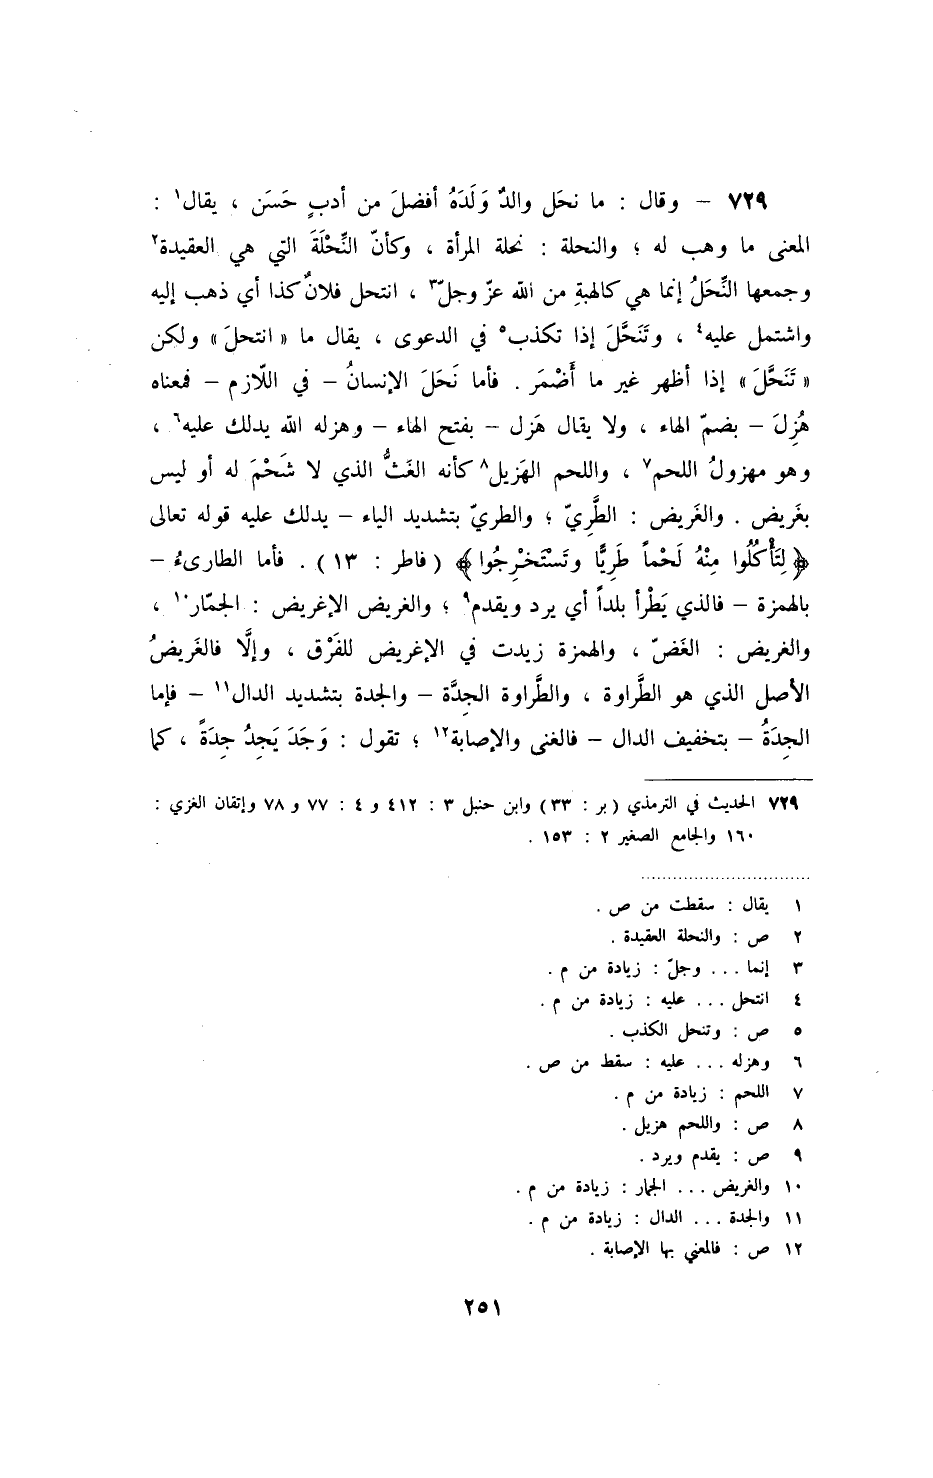 ٧٢٩ – وقال : ما نحَل والدٌ وَلَدَهُ أفضلَ من أدبٍ حَسَن ، يقال١ :
المعنى ما وهب له ؛ والنحلة : نحلة المرأة ، وكأنّ النِّحْلَةَ التي هي العقيدة٢
وجمعها النِّحَلُ إنما هي كالهبةِ من الله عزّ وجلّ٣ ، انتحل فلانٌ كذا أي ذهب إليه
واشتمل عليه٤ ، وتَنَحَّلَ إذا تكذب٥ في الدعوى ، يقال ما « انتحلَ » ولكن
« تَنَحَّلَ » إذا أظهر غير ما أَضْمَر . فأما نَحَلَ الإنسانُ – في اللّازم – فمعناه
هُزِلَ – بضمّ الهاء ، ولا يقال هَزل – بفتح الهاء – وهزله الله يدلك عليه٦ ،
وهو مهزولُ اللحم٧ ، واللحم الهَزيل٨ كأنه الغَثُّ الذي لا شَحْمَ له أو ليس
بغَريض . والغَريض : الطَّرِيّ ؛ والطريّ بتشديد الياء – يدلك عليه قوله تعالى
﴿ لِتَأْكُلُوا مِنْهُ لَحْماً طَرِيًّا وتَسْتَخْرِجُوا ﴾ ( فاطر : ١٣ ) . فأما الطارىءُ –
بالهمزة – فالذي يَطْرأ بلداً أي يرد ويقدم٩ ؛ والغريض الإغريض : الجمّار١٠ ،
والغريض : الغَضّ ، والهمزة زيدت في الإغريض للفَرْق ، وإلَّا فالغَريضُ
الأصل الذي هو الطَّراوة ، والطَّراوة الجِدَّة – والجدة بتشديد الدال١١ – فإما
الجِدَةُ – بتخفيف الدال – فالغنى والإصابة١٢ ؛ تقول : وَجَدَ يَجِدُ جِدَةً ، كما
٧٢٩ الحديث في الترمذي ( بر : ٣٣ ) وابن حنبل ٣ : ٤١٢ و ٤ : ٧٧ و ٧٨ وإتقان الغزي :
١٦٠ والجامع الصغير ٢ : ١٥٣ .
١ يقال : سقطت من ص .
٢ ص : والنحلة العقيدة .
٣ إنما ... وجلّ : زيادة من م .
٤ انتحل ... عليه : زيادة من م .
٥ ص : وتنحل الكذب .
٦ وهزله ... عليه : سقط من ص .
٧ اللحم : زيادة من م .
٨ ص : واللحم هزيل .
٩ ص : يقدم ويرد .
١٠ والغريض ... الجمار : زيادة من م .
١١ والجدة ... الدال : زيادة من م .
١٢ ص : فالمعني بها الإصابة .
٢٥١